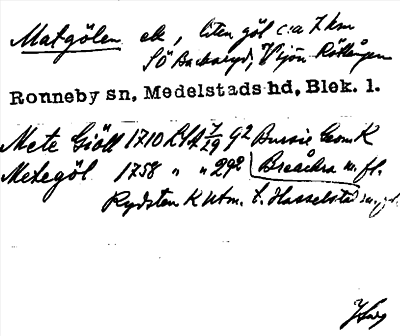 Matgölen, ek, liten göl c:a 7 km
SÖ Backaryd, V sjön Rötlången
Ronneby sn, Medelstads hd, Blek. l.
Mete Giöll 1710 LSA 7/29 92 Bussie Geom K
Metegöl 1758 " " 292 Breåkra m. fl.
Rydsten K Utm. t. Hasselstad m. fl.